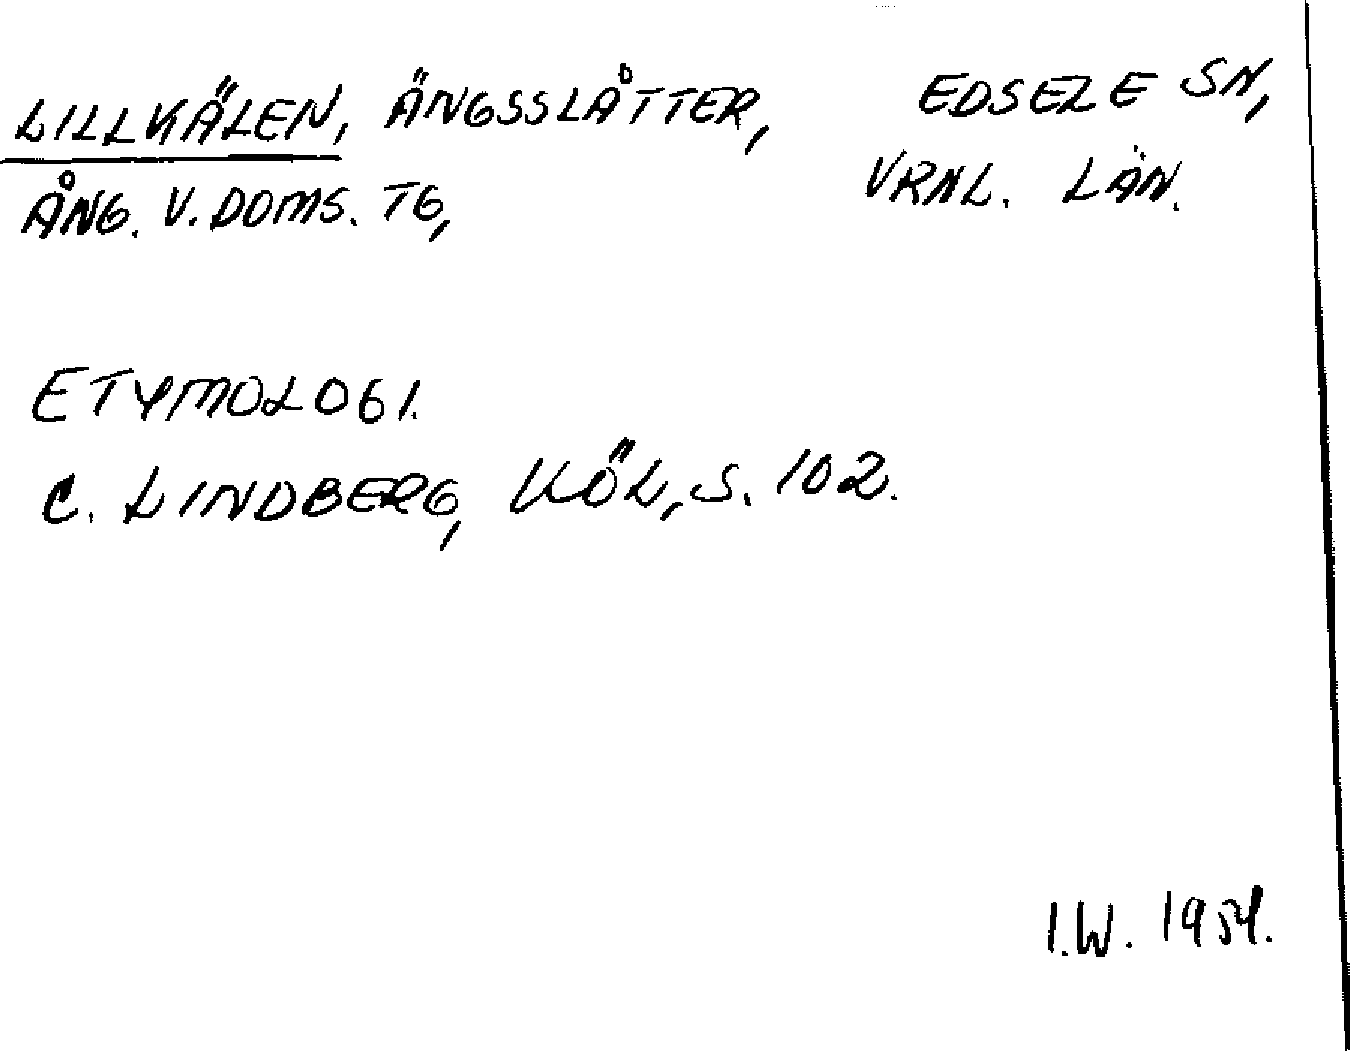 LILLKÄLEN, ÄNGSSLÅTTER, EDSELE SN,
ÅNG. V. DOMS. TG, VRNL. LÄN.
ETYMOLOGI.
C. LINDBERG, KÖL, S. 102.
I.W. 1954.